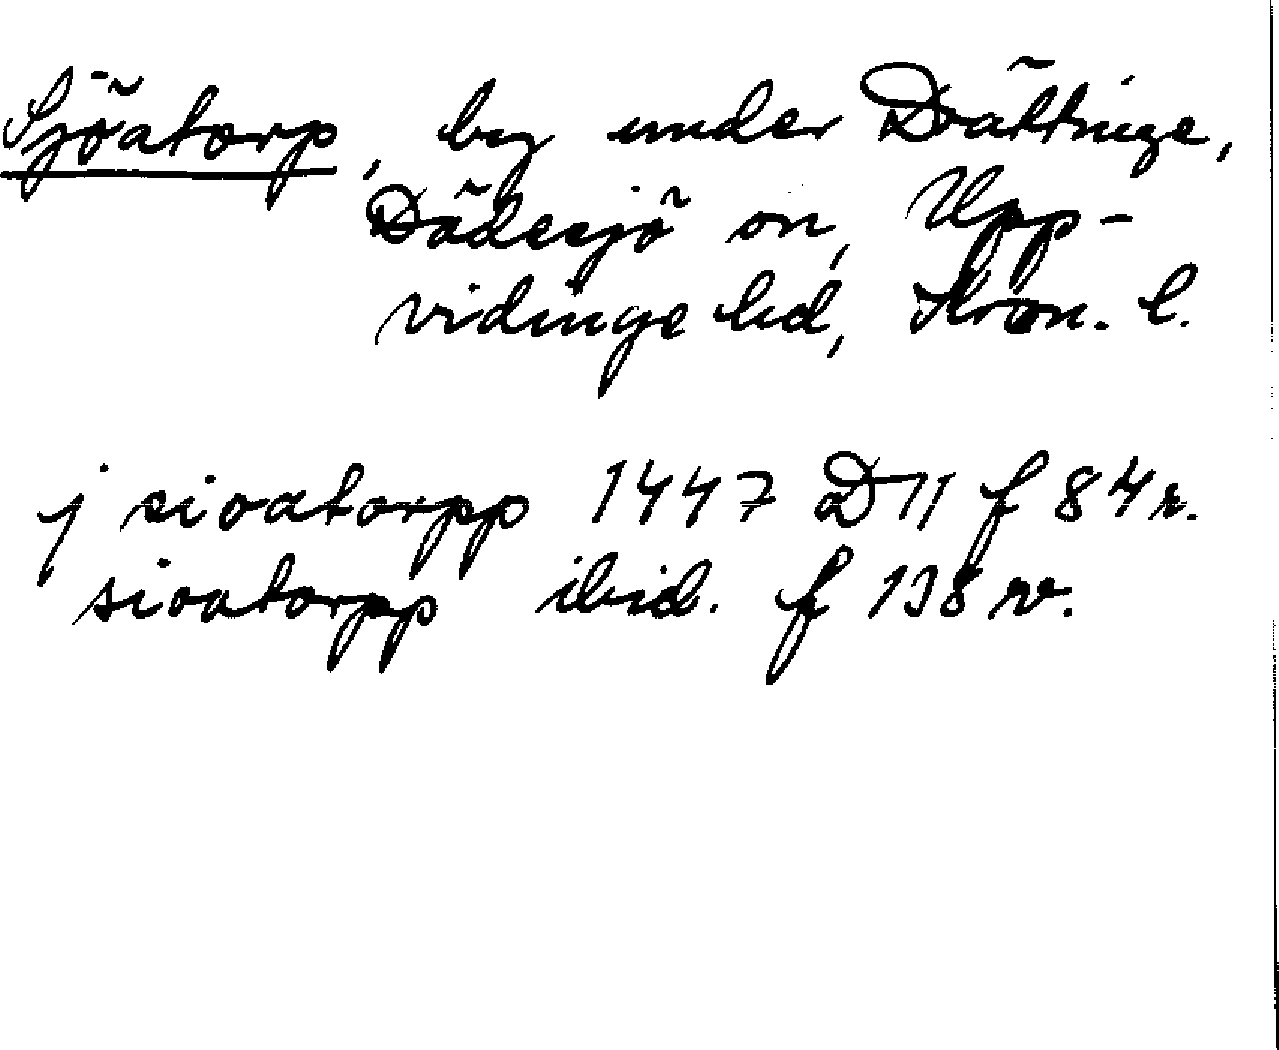 Sjöatorp, by under Drättinge,
Dädesjö sn, Upp-
vidinge hd, Kron. l.
j sioatorpp 1447 D 11 f 84 r.
sioatorpp ibid. f 138 v.